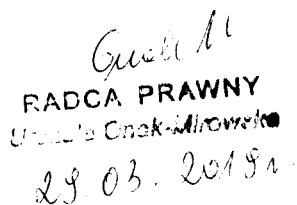 RADCA PRAWNY
Urszula Onak-Mirowska
29.03.2019r.